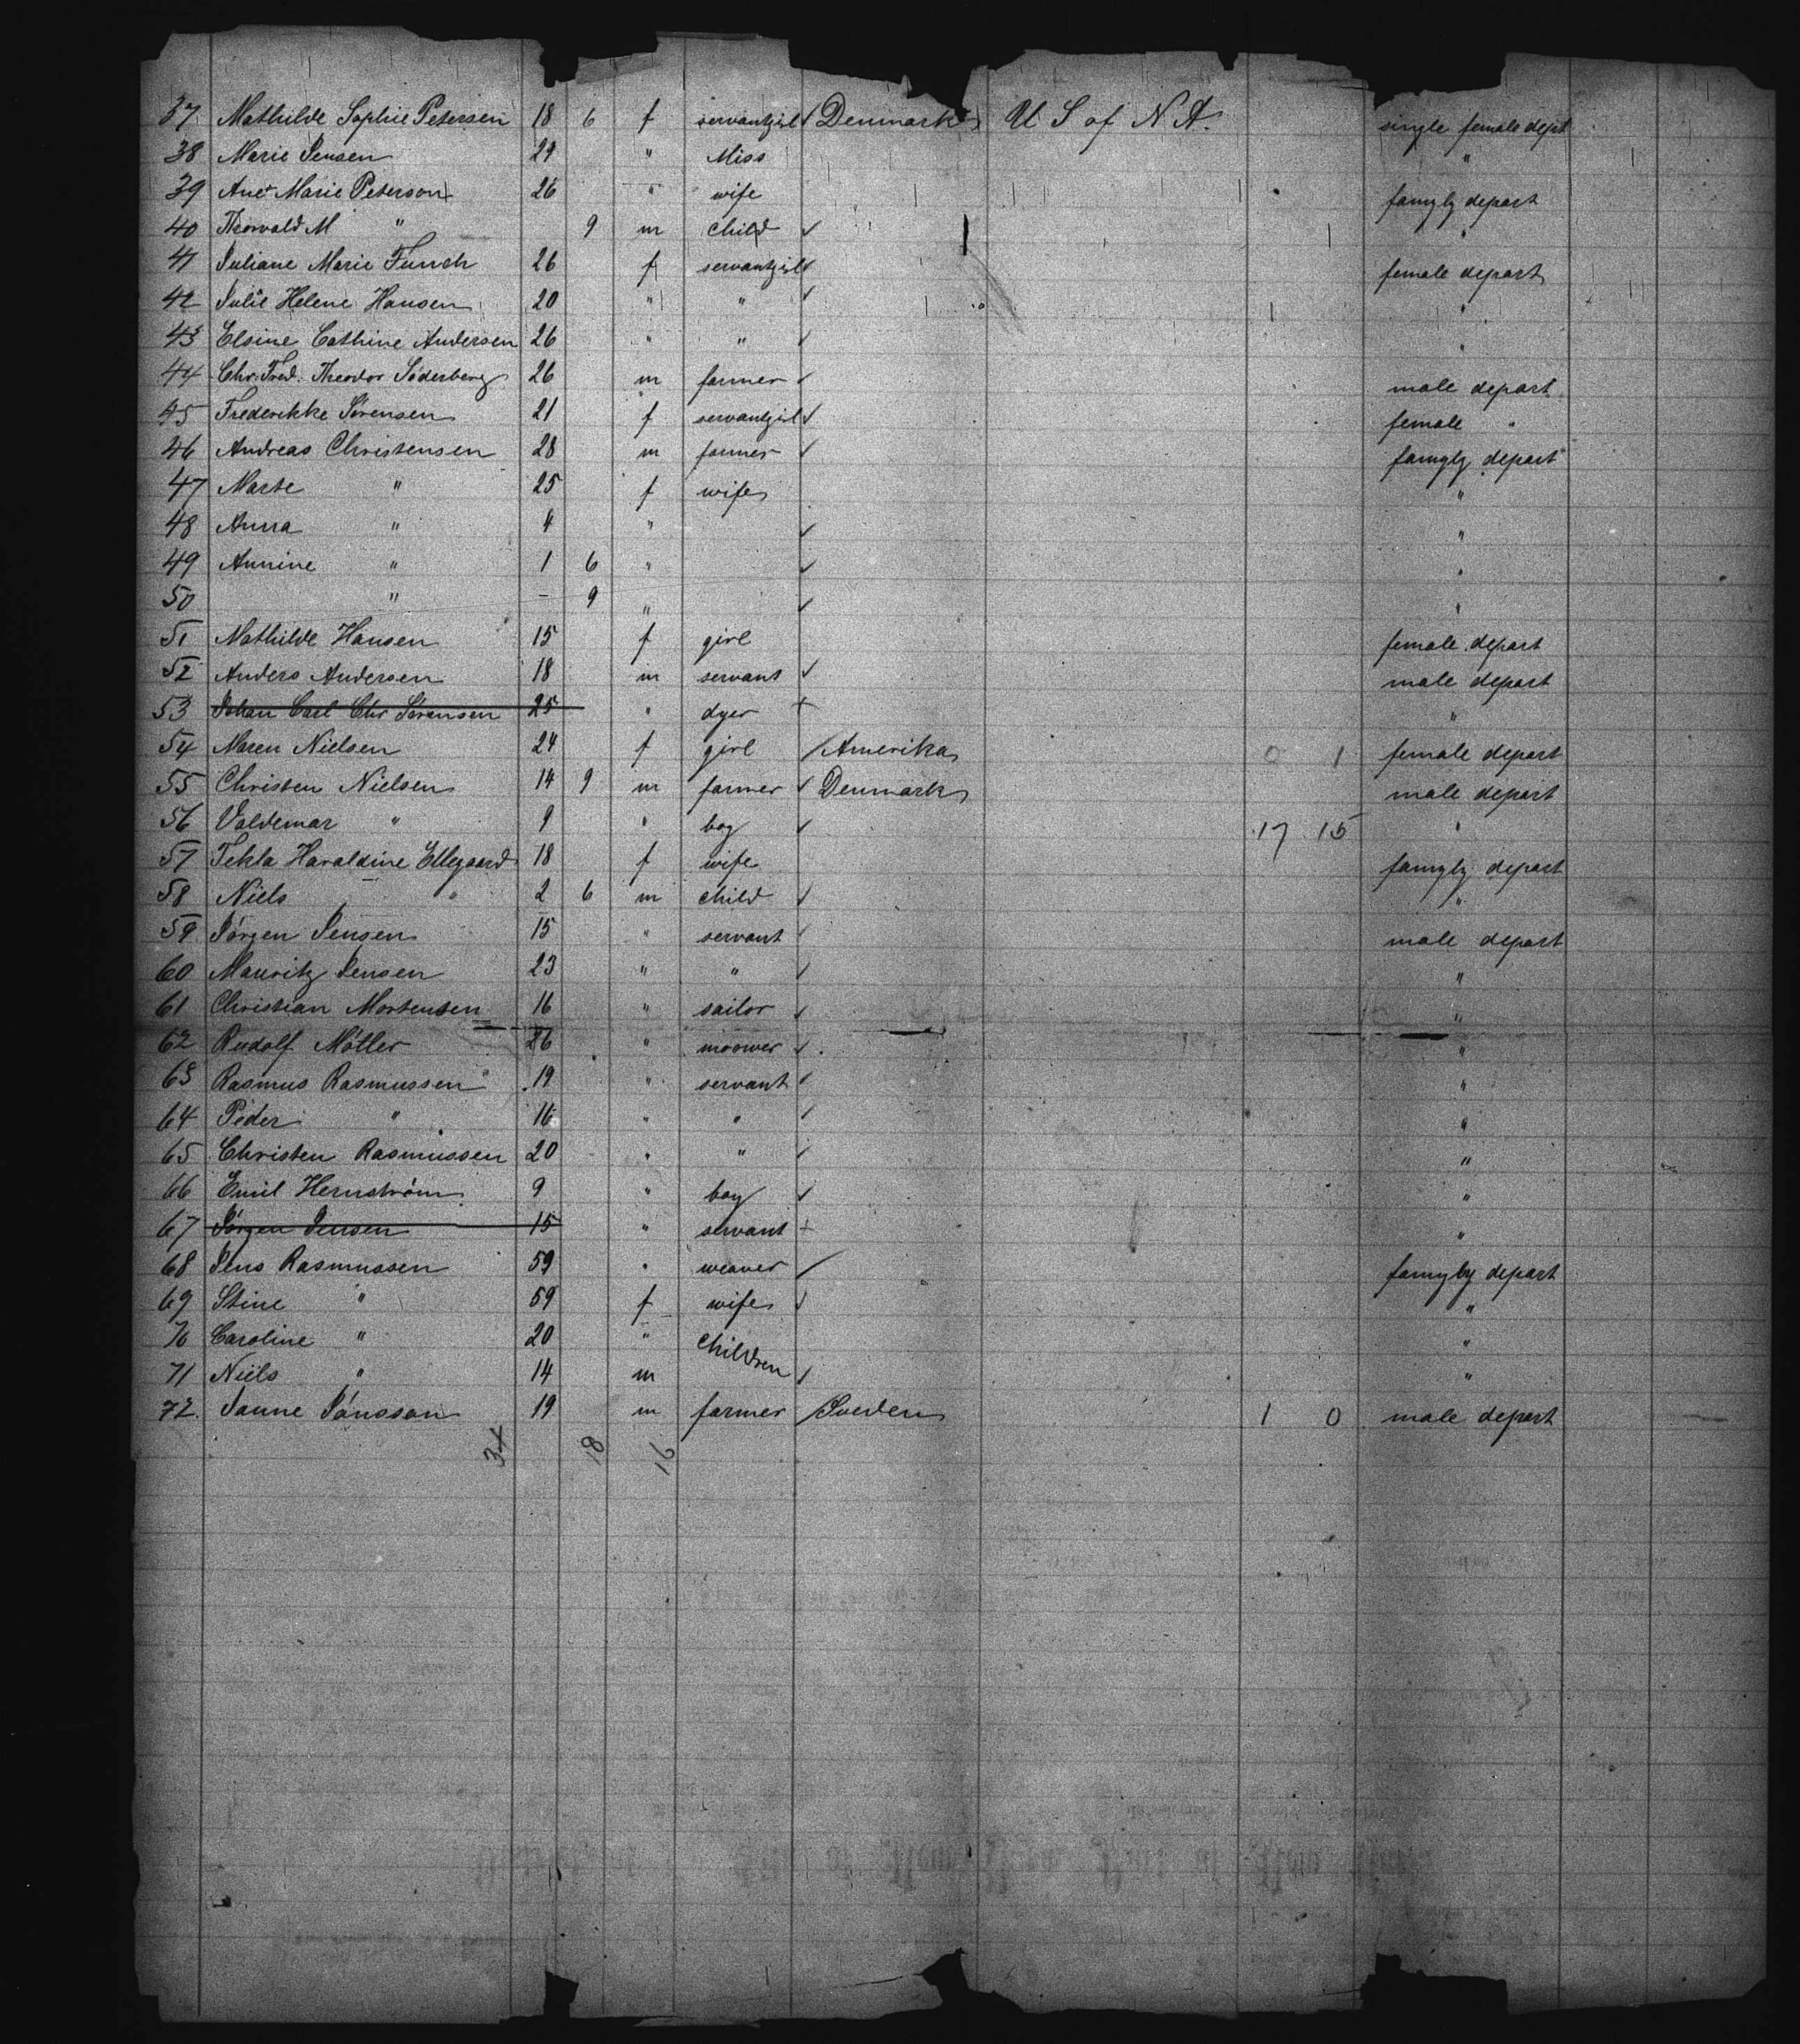 37. Mathilde Sophie Petersen 18 6 f servantgirl Denmark U S of N A. single female dept
38 Marie Jensen 29 " Miss "
39 Ane Marie Peterson 26 " wife famyly depart
40 Thorvald M " 9 m child "
41 Juliane Marie Funch 26 f servantgirl female depart
42 Julie Helene Hansen 20 " " "
43 Elsine Cathine Andersen 26 " " "
44 Chr. Fred. Theodor Söderberg 26 m farmer male depart
45 Frederikke Sørensen 21 f servantgirl female "
46 Andreas Christensen 28 m farmer famyly depart
47 Marte " 25 f wife "
48 Anna " 4 " "
49 Annine " 1 6 " "
50 " - 9 " "
51 Mathilde Hansen 15 f girl female depart
52 Anders Andersen 18 m servant male depart
53 Johan Carl Chr Sørensen 25 " dyer "
54 Maren Nielsen 24 f girl Amerika 0 1 female depart
55 Christen Nielsen 14 9 m farmer Denmark male depart
56 Valdemar " 9 " boy 17 15 "
57 Tekla Haraldine Ellegaard 18 f wife famyly depart
58 Niels " 2 6 m child "
59 Jørgen Jensen 15 " servant male depart
60 Mauritz Jensen 23 " " "
61 Christian Mortensen 16 " sailor "
62 Rudolf Møller 26 " moower "
63 Rasmus Rasmussen 19 " servant "
64 Peder " 16 " " "
65 Christen Rasmussen 20 " " "
66 Emil Hernstrøm 9 " boy "
67 Jørgen Jensen 15 " servant "
68 Jens Rasmussen 59 " weaver famyly depart
69 Stine " 59 f wife "
70 Caroline " 20 " children "
71 Niels " 14 m "
72. Janne Jönsson 19 m farmer Sveden 1 0 male depart
34 18 16